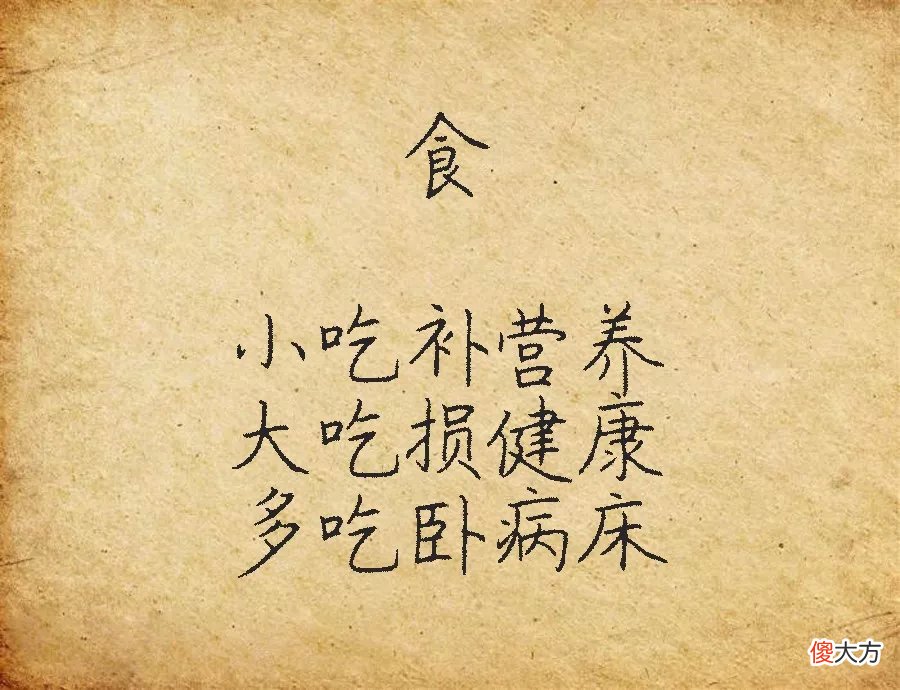 食
小吃补营养
大吃损健康
多吃卧病床
傻大方